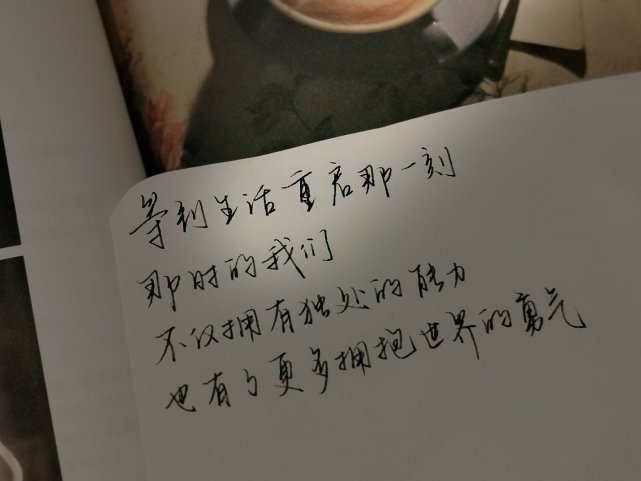 等到生活重启那一刻
那时的我们
不仅拥有独处的能力
也有了更多拥抱世界的勇气